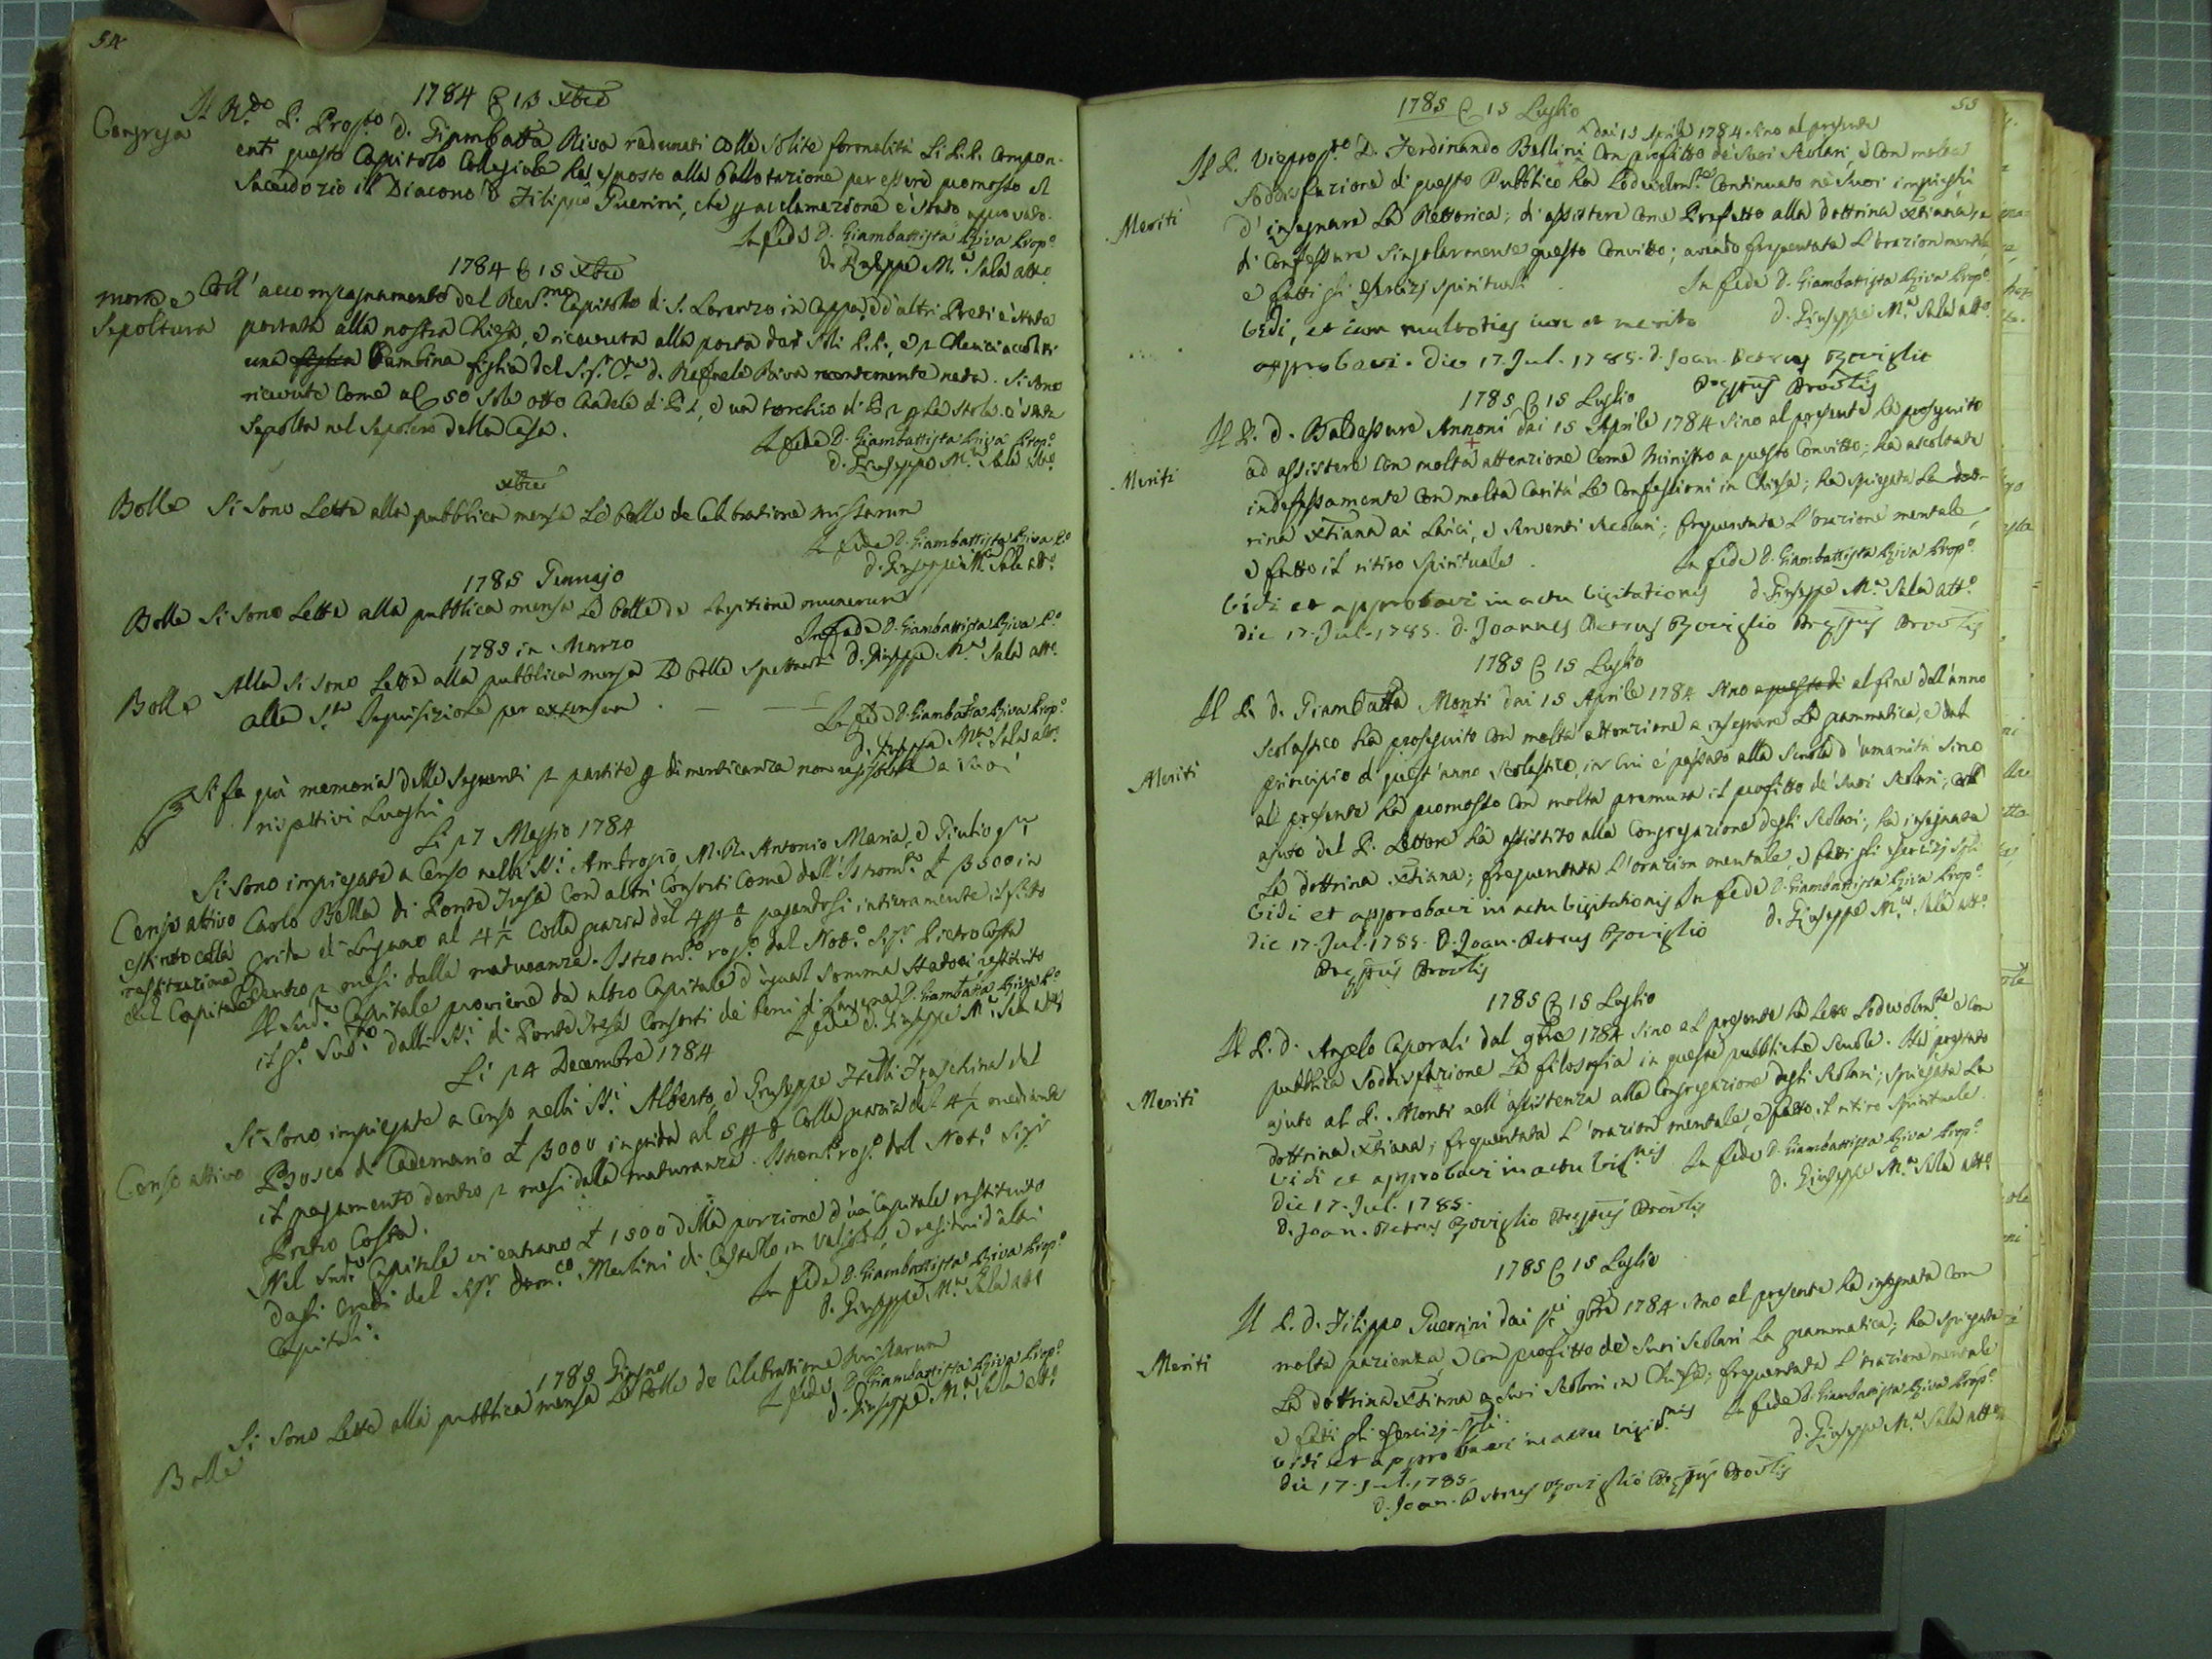 54
1784 13 Xbre
Congrega
Il R.do P. Prop.to D. Giambatta Riva radunati colle solite formalità Li P.P. Compon-
enti questo Capitolo Collegiale ha esposto alla Ballotazione per essere promosso al
Sacerdozio il Diacono D. Filippo Guerrini, che p acclamazione è stato approvato.
In fede D. Giambattista Riva Prop.o
D. Giuseppe M.a Sala att.o
1784 15 Xbre
morte e
Sepoltura
Coll' accompagnamento del Rev.mo Capitolo di S. Lorenzo in Cappa, e d'altri Preti è stata
portata alla nostra Chiesa, e ricevuta alla porta dai Soli P.P., e 2 Chierici accoliti
una figlia Bambina figlia del Sig.r C.te D. Rafaele Riva recentemente nata. Si sono
ricevute come al 50 sole otto Candele di 1, e un torchio di 2 p la stola. è stata
Sepolta nel Sepolcro della Casa.
In fede D. Giambattista Riva Prop.o
D. Giuseppe M.a Sala Att.o
Xbre
Bolle
Si sono Lette alla pubblica mensa Le bolle de Celebratione missarum
In fede D. Giambattista Riva P.o
D. Giuseppe M.a Sala att.o
1785 Gennajo
Bolle
Si sono Lette alla pubblica mensa Le bolle de Largitione munerum
In fede D. Giambattista Riva P.o
D. Giuseppe M.a Sala att.o
1785 in Marzo
Bolle
Alla Si sono Lette alla pubblica mensa Le bolle spettanti
alla S.ta Inquisizione per extensum.
In fede D. Giambatta Riva Prop.o
D. Giuseppe M.a Sala att.o
Si fa quì memoria delle seguenti 2 partite p dimenticanza non registrate a suoi
rispettivi Luoghi
Li 27 Maggio 1784
Censo attivo
estinto colla
restituzione
del Capitale
Si sono impiegate a Censo nelli SS.i Ambrogio, M.R. Antonio Maria, e Giulio q.m
Carlo Bella di Ponte Tresa con altri Consorti come dall' Istrom.o £ 3500 in
Grida di Lugano al 4 1/2 colla grazia del 4 pagandosi intieramente il fitto
dentro 2 mesi dalla maturanza. Istrom.o rog.o dal Not.o Sig.r Pietro Costa
Il Sud.o Capitale proviene da altro Capitale d'egual somma statoci restituito
il g.o Sud.o dalli SS.i di Ponte Tresa Consorti de beni di Lavena
In fede D. Giambatta Riva P.o
D. Giuseppe M.a Sala att.o
Li 24 Decembre 1784
Censo attivo
Si sono impiegate a Censo nelli SS.i Alberto, e Giuseppe Fratelli Fraschina del
Bosco di Cademario £ 3000 in grida al 5 colla grazia del 4 1/2 mediante
il pagamento dentro 2 mesi dalla maturanza. Istrom.o rog.o dal Not.o Sig.r
Pietro Costa.
Nel Sud.o Capitale vi entrano £ 1500 della porzione d'un Capitale restituito
dagli eredi del Sig.r Dom.co Merlini di Castello in Valsolda, e residui d'altri
Capitali.
In fede D. Giambattista Riva Prop.o
D. Giuseppe M.a Sala att.o
1785 Giugno
Bolle
Si sono Lette alla pubblica mensa Le bolle de Celebratione Missarum
In fede D. Giambattista Riva Prop.o
D. Giuseppe M.a Sala att.o
55
1785 15 Luglio
dai 15 Aprile 1784 sino al presente
Meriti
Il P. Viceprop.to D. Ferdinando Bellini con profitto de' suoi Scolari, e con molta
soddisfazione di questo Pubblico ha Lodevolm.te Continuato ne' suoi impieghi
d' insegnare La Rettorica; di assistere come Prefetto alla dottrina Xtiana, e
di Confessare singolarmente questo Convitto; avendo frequentata L'orazion mentale,
e fatti gli esercizj spirituali.
In fede D. Giambattista Riva Prop.o
D. Giuseppe M.a Sala att.o
Vidi, et iam multoties iure et merito
approbavi. Die 17. Jul. 1785. D. Joan. Petrus Roviglio
Prep.tus Prov.lis
1785 15 Luglio
Meriti
Il P. D. Baldassare Annoni dai 15 Aprile 1784 sino al presente ha proseguito
ad assistere con molta attenzione come Ministro a questo Convitto; ha ascoltate
indefessamente con molta carità Le Confessioni in Chiesa; ha spiegata La dott-
rina Xtiana ai Laici, e serventi Secolari; frequentata L'orazione mentale,
e fatto il ritiro spirituale.
In fede D. Giambattista Riva Prop.o
D. Giuseppe M.a Sala att.o
Vidi et approbavi in actu Visitationis
die 17. Jul. 1785. D. Joannes Petrus Roviglio Prep.tus Prov.lis
1785 15 Luglio
Meriti
Il P. D. Giambatta Monti dai 15 Aprile 1784 sino a questo dì al fine dell'anno
scolastico ha proseguito con molta attenzione a insegnare La grammatica, e dal
principio di quest'anno scolastico, in cui è passato alla scuola d'umanità sino
al presente ha promosso con molta premura il profitto de' suoi Scolari; coll'
ajuto del P. Lettore ha assistito alla Congregazione degli Scolari; ha insegnata
La dottrina Xtiana; frequentata L'orazion mentale e fatti gli esercizj sp.li
Vidi et approbavi in actu Visitationis
In fede D. Giambattista Riva Prop.o
D. Giuseppe M.a Sala att.o
die 17. Jul. 1785. D. Joan. Petrus Roviglio
Prep.tus Prov.lis
1785 15 Luglio
Meriti
Il P. D. Angelo Caporali dal 9bre 1784 sino al presente ha Letto Lodevolm.te e con
pubblica soddisfazione La filosofia in queste pubbliche Scuole. Ha prestato
ajuto al P. Monti nell'assistenza alla Congregazione degli Scolari; spiegata La
dottrina Xtiana; frequentata L'orazion mentale, e fatto il ritiro spirituale.
Vidi et approbavi in actu Vis.nis
In fede D. Giambattista Riva Prop.o
D. Giuseppe M.a Sala att.o
Die 17. Jul. 1785.
D. Joan. Petrus Roviglio Prep.tus Prov.lis
1785 15 Luglio
Meriti
Il P. D. Filippo Guerrini dai 9bre 1784 sino al presente ha insegnata con
molta pazienza, e con profitto de' suoi Scolari La grammatica; ha spiegata
La dottrina Xtiana a suoi Scolari in Chiesa; frequentata L'orazione mentale
e fatti gli esercizj sp.li
Vidi et approbavi in actu Visit.nis
In fede D. Giambattista Riva Prop.o
D. Giuseppe M.a Sala att.o
Die 17. Jul. 1785.
D. Joan. Petrus Roviglio Prep.tus Prov.lis